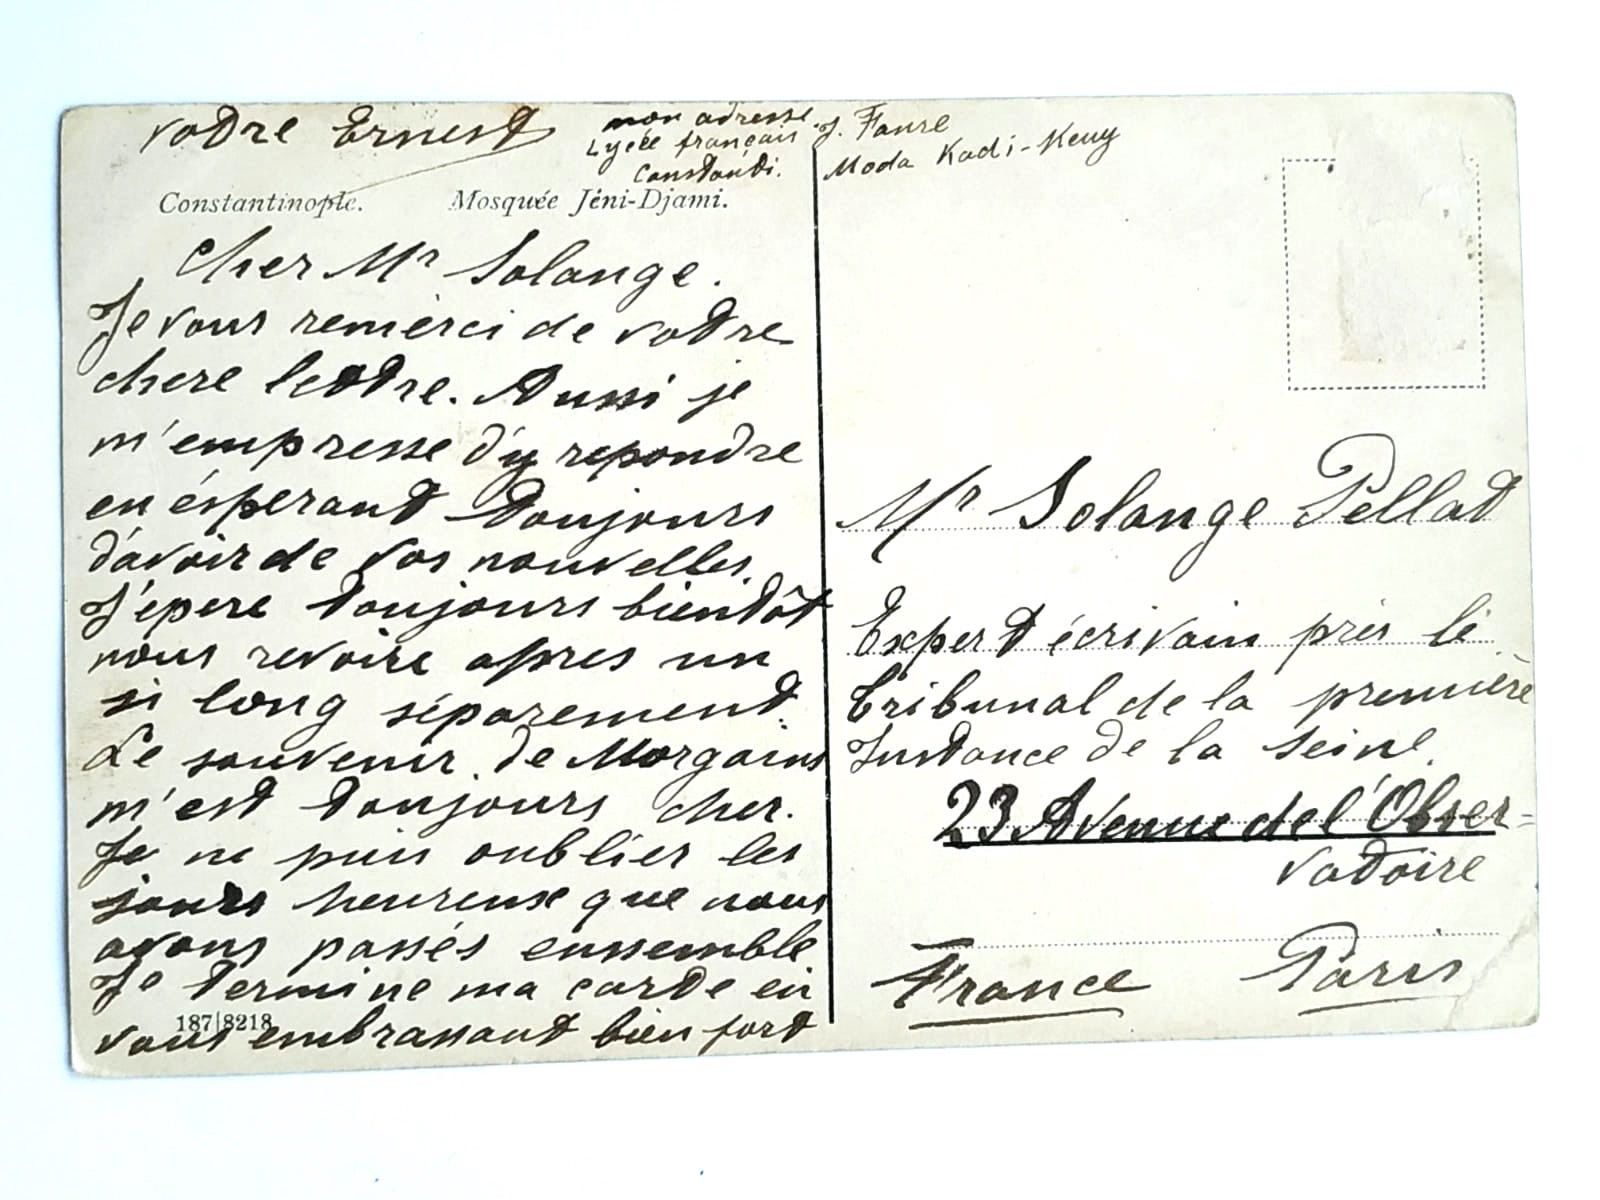 votre Ernest
mon adresse.
Lycée français
Constanti.
J. Faure
Moda Kadi-Keuy
Constantinople. Mosquée Jéni-Djami.
Cher Mr Solange.
Je vous remerci de votre
chere lettre. Aussi je
m'empresse d'y repondre
en ésperant toujours
d'avoir de vos nouvelles.
J'épere toujours bientôt
nous revoire apres un
si long séparement.
Le souvenir de Morgains
m'est toujours cher.
Je ne puis oublier les
jours heureuse que nous
avons passés enssemble
Je termine ma carte en
187|8218
vous embrassant bien fort
Mr Solange Pellat
Expert écrivain près le
tribunal de la première
Instance de la Seine.
23 Avenue de l'Obser=
vatoire
France Paris